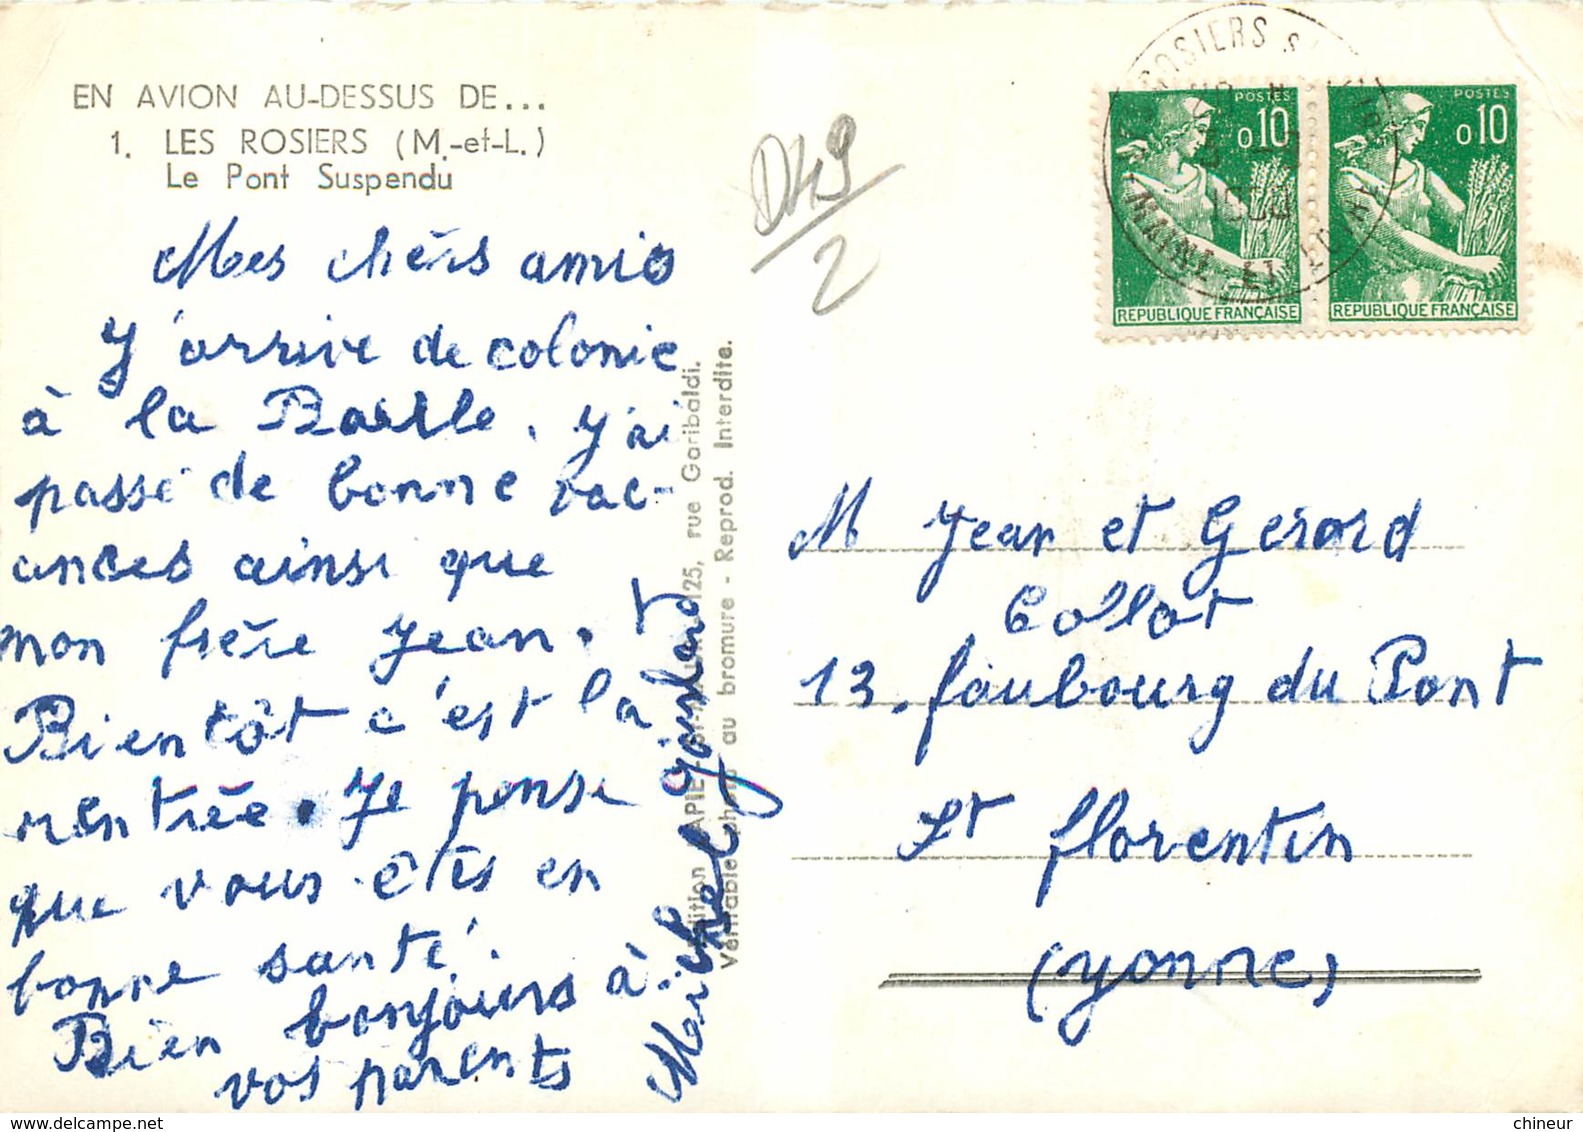 EN AVION AU-DESSUS DE...
1. LES ROSIERS (M.-et-L.)
Le Pont Suspendu
Mes chérs amis
Y'arrive de colonie
à la Baulle. y'ai
passé de bonne vac-
ances ainsi que
mon frère Jean.
Bientôt c'est la
rentrée. Je pense
que vous êtes en
bonne santé.
Bien bonjours à
vos parents
Michel
125, rue Garibaldi.
Véritable photo au bromure - Reprod. Interdite.
D49
2
POSTES
0,10
REPUBLIQUE FRANÇAISE
POSTES
0,10
REPUBLIQUE FRANÇAISE
ROSIERS
MAINE ET LOIRE
M Jean et Gerard
Collot
13. faubourg du Pont
St florentin
(yonne)
chineur